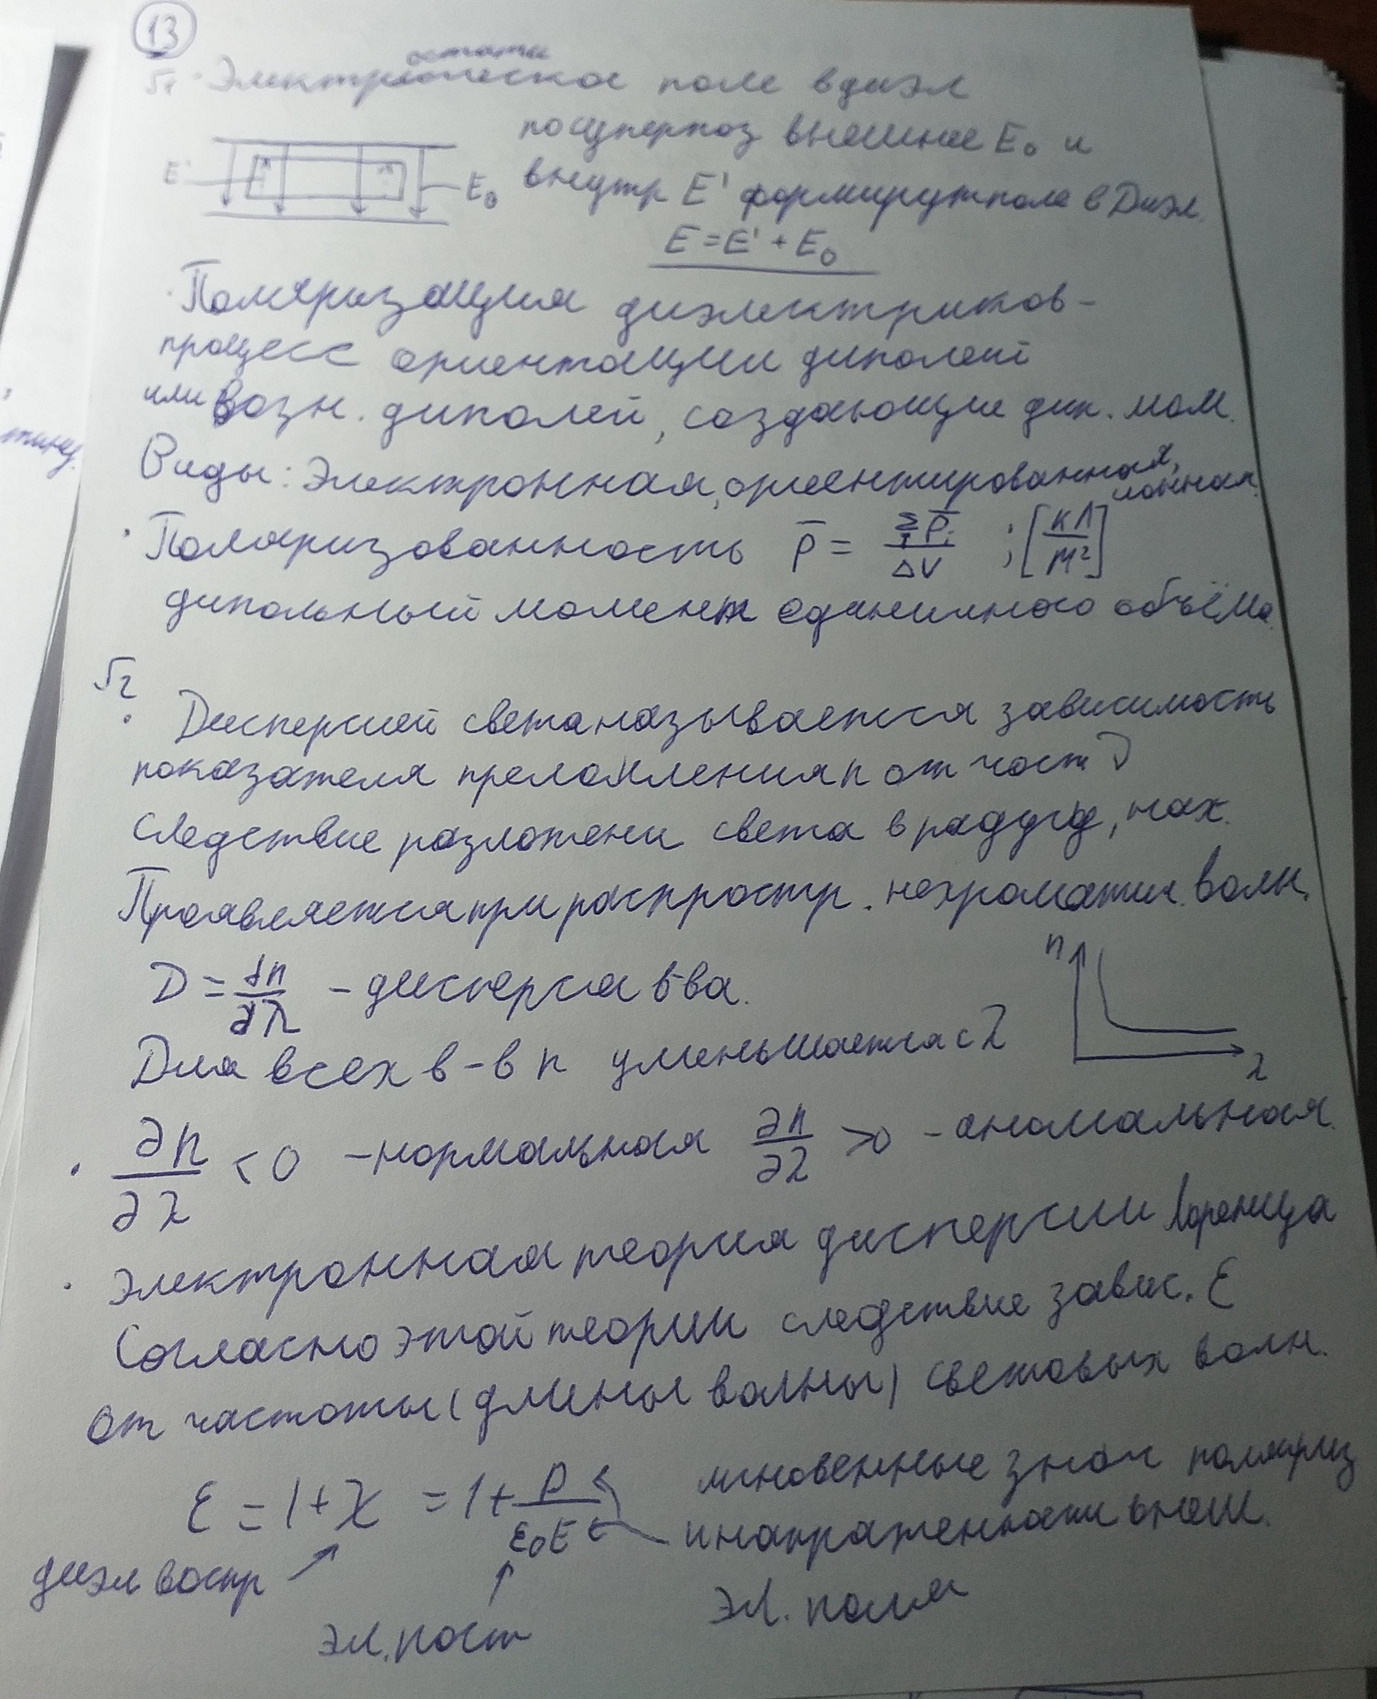 13
√1 · Электростатическое поле в диэл
по суперпоз внешнее E₀ и
E' E₀ внутр E' формирут поле в Диэл.
E = E' + E₀
· Поляризация диэлектриков -
процесс ориентации диполей
или возн. диполей, создающие дип. мом.
Виды: Электронная, ориентированная, ионная.
· Поляризованность p̄ = Σp̄ᵢ/ΔV ; [кл/м²]
дипольный момент единичного объёма.
√2
· Дисперсией света называется зависимость
показателя преломления n от част ν
следствие разложени света в радугу,
Проявляется при распростр. нехроматич. волн.
D = dn/dλ - дисперсия в-ва.
n
Для всех в-в n уменьшается с λ
λ
· ∂n/∂λ < 0 - нормальная ∂n/∂λ > 0 - аномальная.
· Электронная теория дисперсии Лоренца
Согласно этой теории следствие завис. ε
от частоты (длины волны) световых волн.
ε = 1 + χ = 1 + P/ε₀E мгновенные знач поляриз
и напряженности внеш.
диэл воспр
эл. пост эл. поля